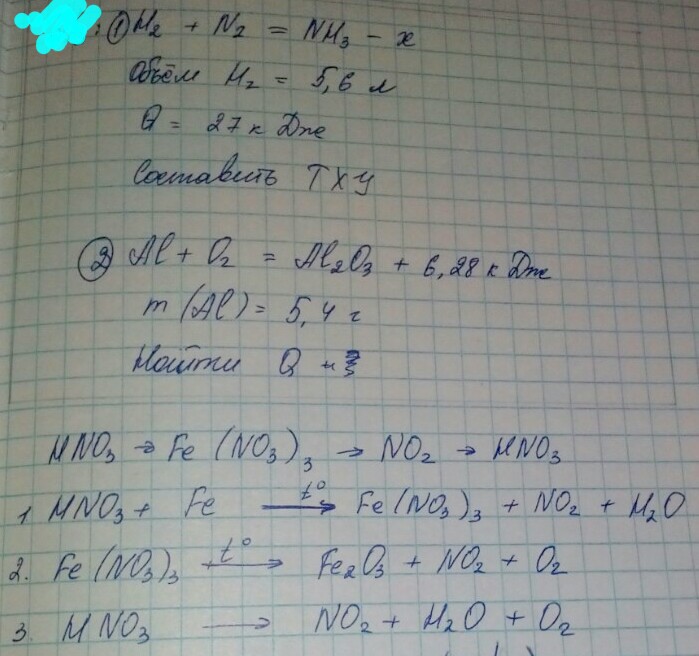 ① H₂ + N₂ = NH₃ - x
Объём H₂ = 5,6 л
Q = 27 к Дже
Составить ТХУ
② Al + O₂ = Al₂O₃ + 6,28 к Дже
m (Al) = 5,4 г
Найти Q
HNO₃ → Fe (NO₃)₃ → NO₂ → HNO₃
1 HNO₃ + Fe t° → Fe (NO₃)₃ + NO₂ + H₂O
2. Fe (NO₃)₃ t° → Fe₂O₃ + NO₂ + O₂
3. HNO₃ → NO₂ + H₂O + O₂